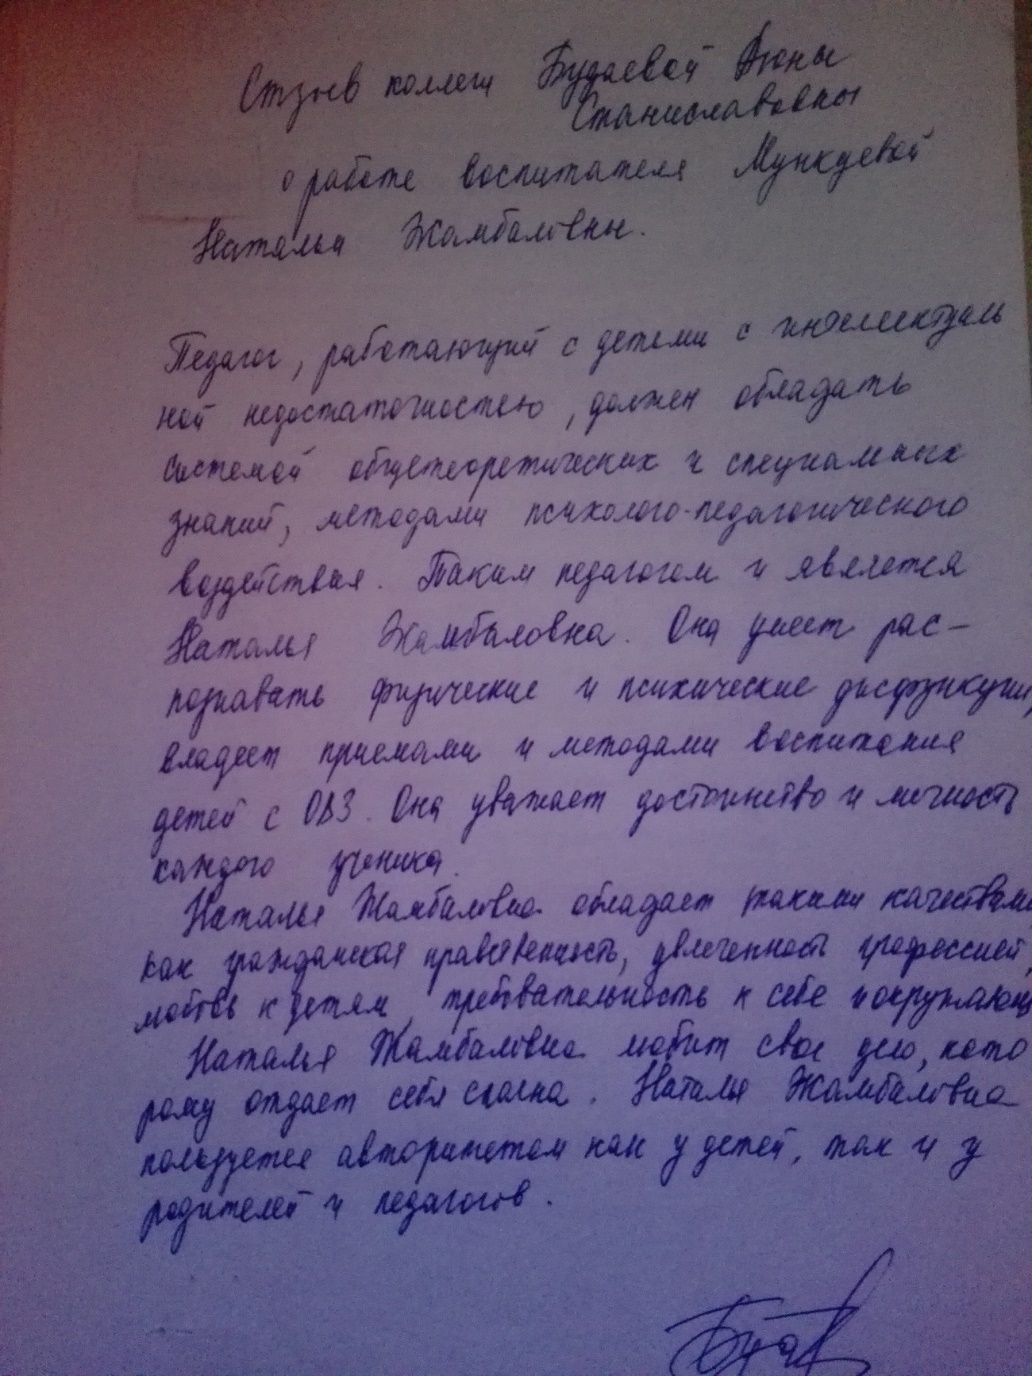 Отзыв коллеги Будаевой Аюны
Станиславовны
о работе воспитателя Мункуевой
Натальи Жамбаловны.
Педагог, работающий с детьми с интеллектуаль
ной недостаточностью, должен обладать
системой общетеоретических и специальных
знаний, методами психолого-педагогического
воздействия. Таким педагогом и является
Наталья Жамбаловна. Она умеет рас-
познавать физические и психические дисфункции,
владеет приемами и методами воспитания
детей с ОВЗ. Она уважает достоинство и личность
каждого ученика.
Наталья Жамбаловна обладает такими качествами
как гражданская нравственность, увлеченность профессией,
любовь к детям, требовательность к себе и окружающ
Наталья Жамбаловна любит свое дело, кото
рому отдает себя сполна. Наталья Жамбаловна
пользуется авторитетом как у детей, так и у
родителей и педагогов.